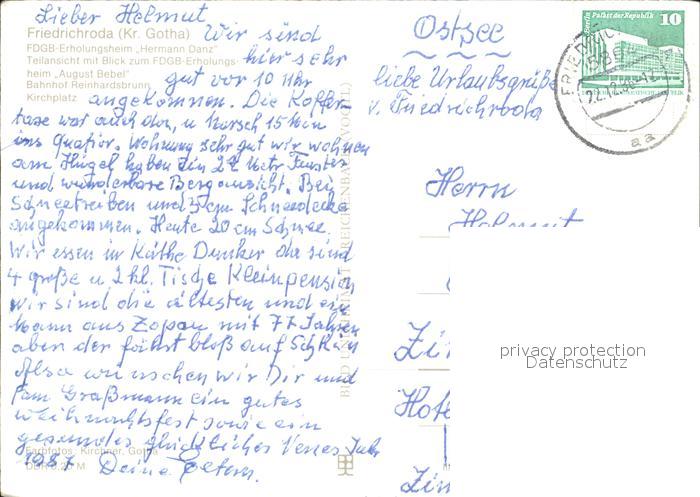 Lieber Helmut
Friedrichroda (Kr. Gotha) Wir sind
FDGB-Erholungsheim „Hermann Danz"
Teilansicht mit Blick zum FDGB-Erholungs- hier sehr
heim „August Bebel"
Bahnhof Reinhardsbrunn gut vor 10 Uhr
Kirchplatz angekommen. Die Koffer-
taxe war auch da, u Marsch 15 Min
ins Quatier. Wohnung sehr gut wir wohnen
am Hügel haben ein 2½ Metr Fenster
und wunderbare Bergansicht. Bei
Schneetreiben und 5 cm Schneedecke
angekommen. Heute 20 cm Schnee.
Wir essen in Käthe Dunker da sind
4 große u. 2 kl. Tische Kleinpension
wir sind die ältesten und ein
Mann aus Zopau mit 77 Jahren
aber der fährt bloß auf Schiern
Also wünschen wir Dir und
Fam Graßmann ein gutes
Weihnachtsfest sowie ein
gesundes glückliches Neues Jahr
Farbfotos: Kirchner, Gotha
1987 Deine Eltern.
DDR 0,20 M
BILD UND HEIMAT REICHENBACH (VOGTL)
Ostsee
liebe Urlaubsgrüße
v. Friedrichroda
Herrn
Helmut
Zi
Hote
Zim
Berlin, Palast der Republik 10
DEUTSCHE DEMOKRATISCHE REPUBLIK
aa
privacy protection
Datenschutz